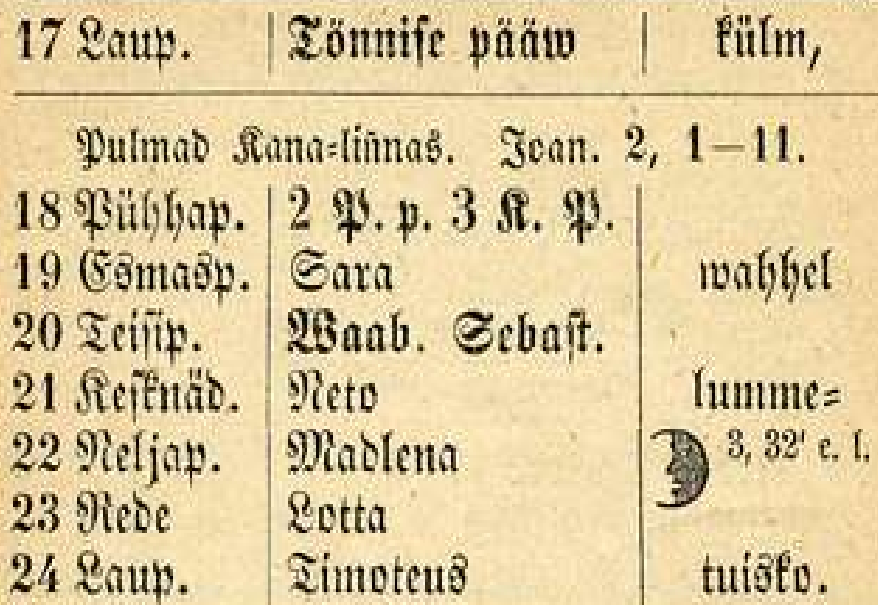 17 Laup. Tönnise pääw külm,
Pulmad Kana-liñnas. Joan. 2, 1—11.
18 Pühhap. 2 P. p. 3 K. P.
19 Esmasp. Sara wahhel
20 Teisip. Waab. Sebast.
21 Kesknäd. Neto lumme-
22 Neljap. Madlena 3, 32' e. l.
23 Rede Lotta
24 Laup. Timoteus tuisko.